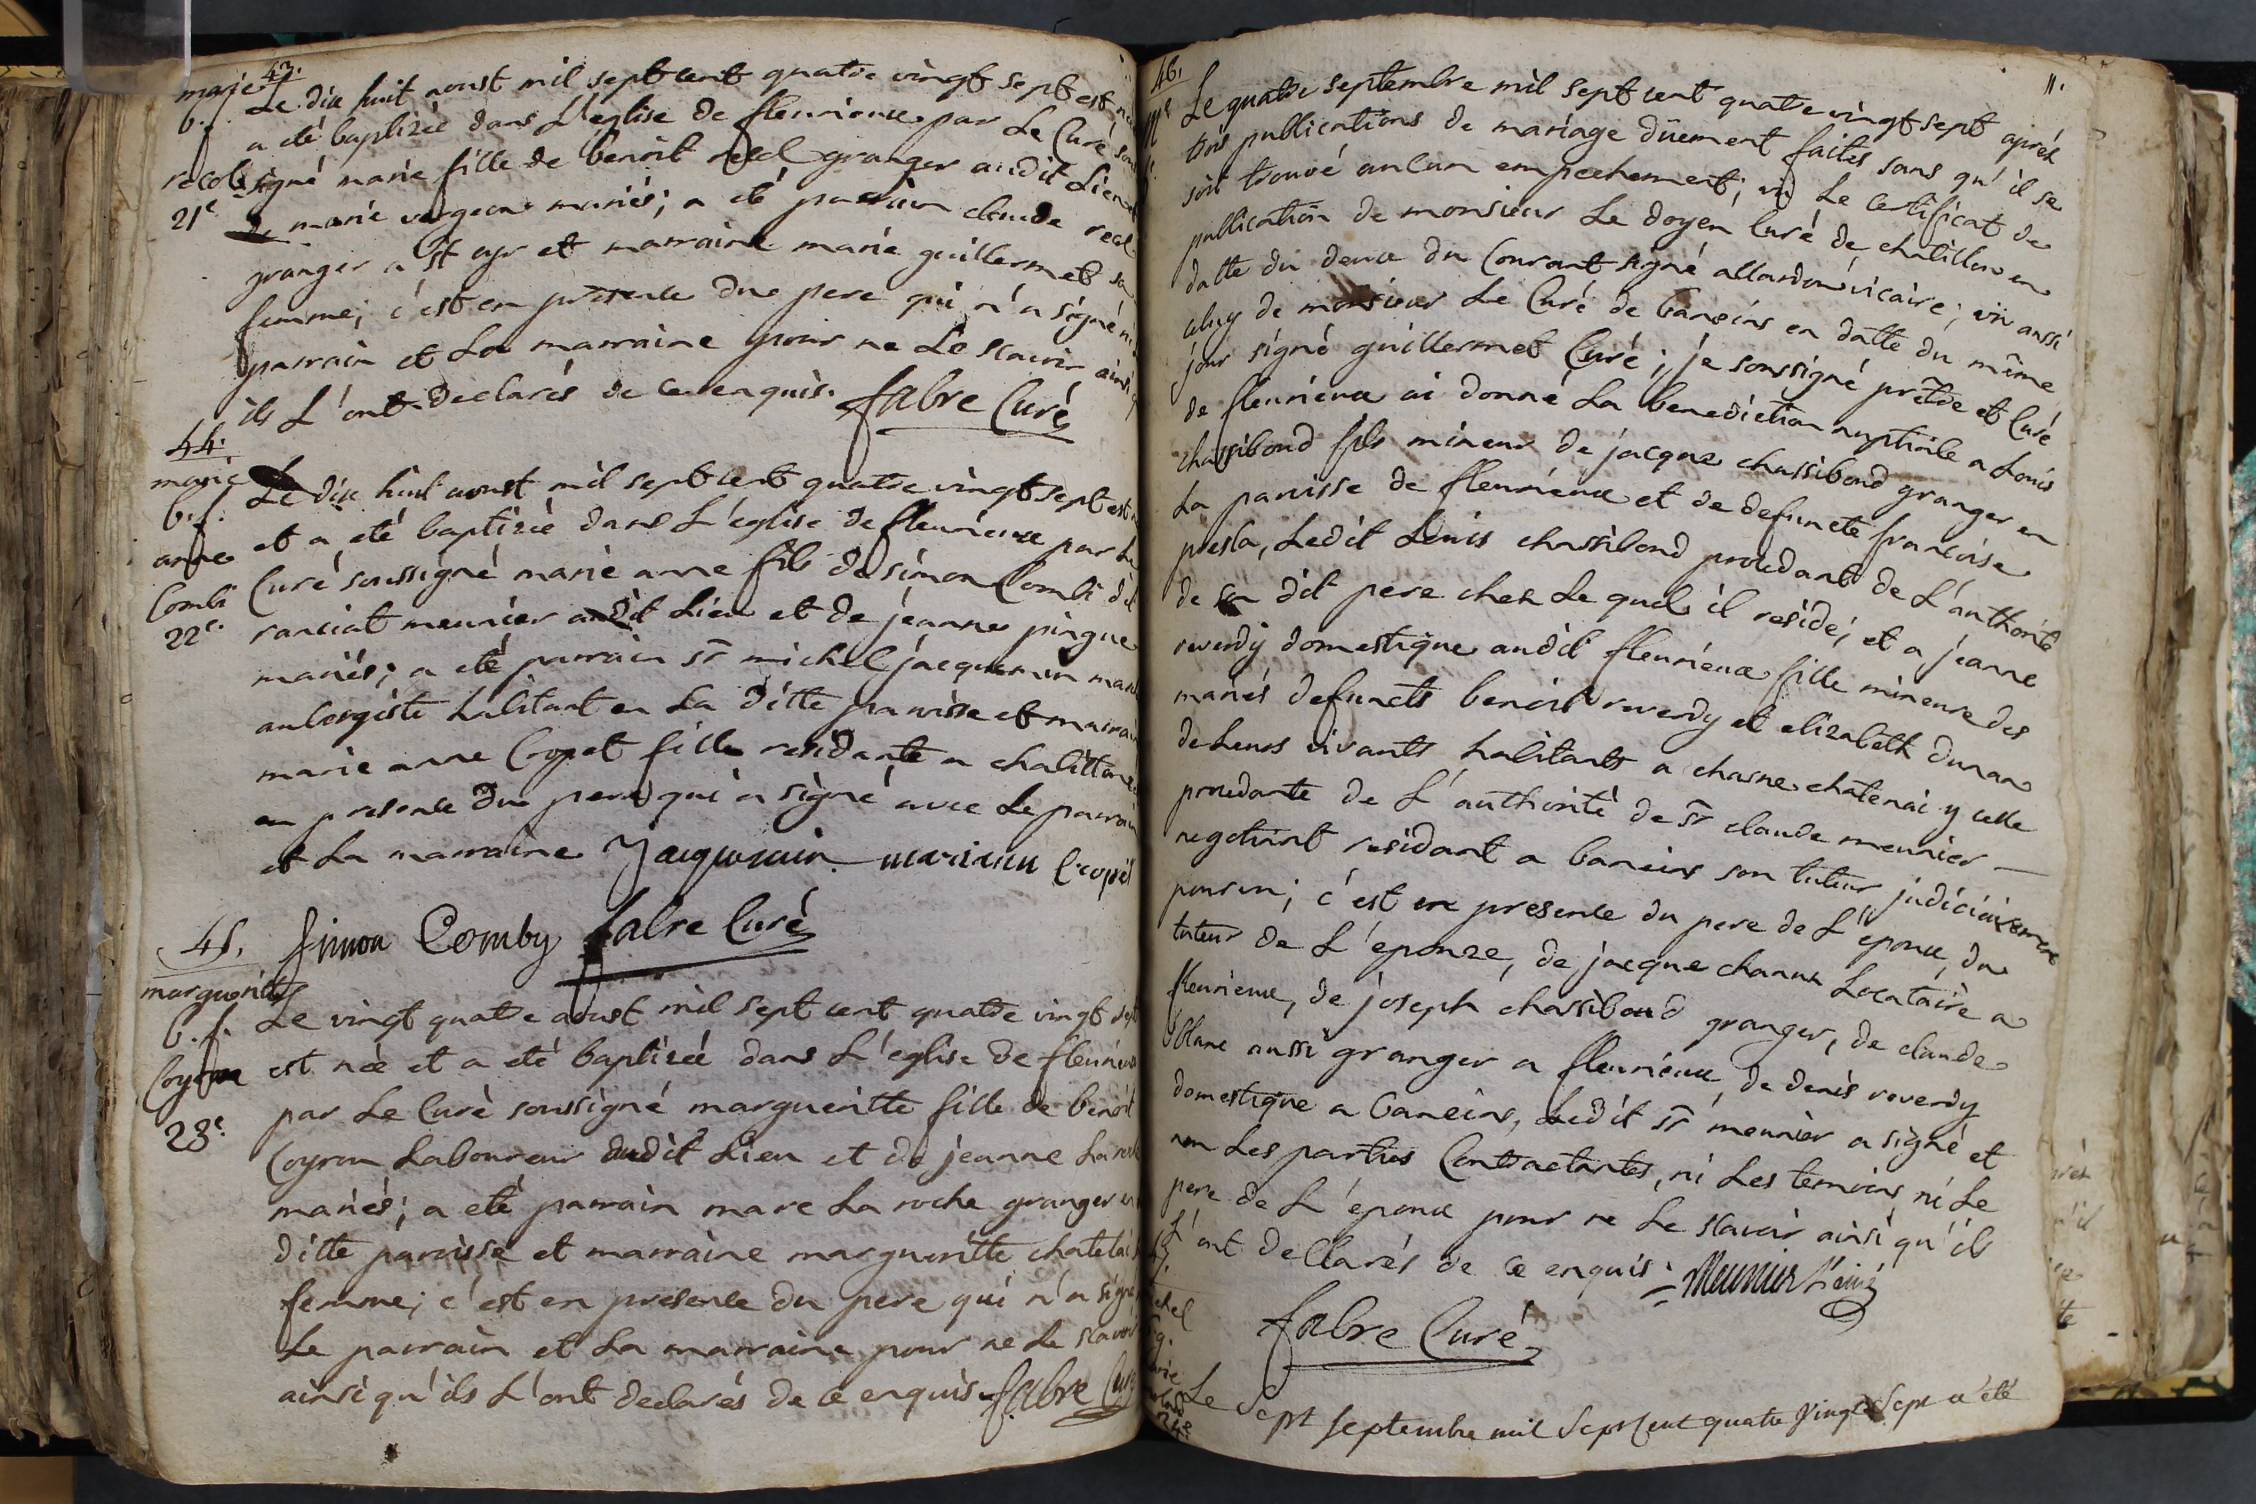 43.
marie
b. f.
recol
21e
Le dix huit aoust mil sept cent quatre vingt sept est née
a eté baptizée dans L'eglise de fleurieux par Le Curé sous
signé marie fille de benoit recol granger audit Lieu et
de marie vergeon mariés; a eté parrain claude recol
granger a St cyr et marraine marie guillermet sa
femme; c'est en presence du pere qui n'a signé ni
parrain et La marraine pour ne Le scavoir ainsi q
ils L'ont declarés de ce enquis. fabre Curé
44.
marie
b. f.
anne
Combi
22e.
Le dix huit aoust mil sept cent quatre vingt sept est n
et a eté baptizée dans L'eglise de fleurieux par Le
Curé soussigné marie anne fille de simon Combi dit
ranciat meunier audit Lieu et de jeanne pingue
mariés; a eté parrain Sr michel jacquemin mar
aubergiste habitant en La ditte paroisse et marrain
marie anne Cropet fille residante a chatillon
en presence du pere qui a signé avec Le parrain
et La marraine Jacquemin mariann Cropet
Simon Comby fabre Curé
45.
margueritte
b. f.
Coyron
23e.
Le vingt quatre aoust mil sept cent quatre vingt sept
est née et a eté baptizée dans L'eglise de fleurieux
par Le Curé soussigné margueritte fille de benoit
Coyron Laboureur dudit Lieu et de jeanne La roche
mariés; a eté parrain marc La roche granger en
ditte paroisse et marraine margueritte chatelai
femme; c'est en presence du pere qui n'a signé
Le parrain et La marraine pour ne Le scavoir
ainsi qu'ils L'ont declarés de ce enquis fabre Curé
46.
11.
Le quatre septembre mil sept cent quatre vingt sept aprés
trois publications de mariage düement faites sans qu'il se
soit trouvé aucun empechement; vû Le Certificat de
publication de monsieur Le doyen Curé de chatillon en
datte du deux du Courant signé allardon vicaire; vû aussi
celuy de monsieur Le Curé de baneins en datte du même
jour signé guillermet Curé; je soussigné prêtre et Curé
de fleurieux ai donné La benediction nuptiale a Louis
chassibond fils mineur de jacque chassibond granger en
La paroisse de fleurieux et de defuncte francoise
presla, Ledit Louis chassibond procedant de L'authorité
de son dit pere chez Le quel il reside; et a jeanne
reverdy domestique audit fleurieux fille mineure des
mariés defuncts benoit reverdy et elizabeth duran
de Leurs vivants habitants a charne chatenai y celle
procedante de L'authorité de Sr claude meunier
negotiant residant a baneins son tuteur judiciairement
pourvu; c'est en presence du pere de L'epoux, du
tuteur de L'epouze, de jacque charun Locataire a
fleurieux, de joseph chassibond granger, de claude
blanc aussi granger a fleurieux, de denis reverdy
domestique a baneins, Ledit Sr meunier a signé et
non Les parties Contractantes, ni Les temoins, ni Le
pere de L'epoux pour ne Le scavoir ainsi qu'ils
L'ont decllarés de ce enquis. Meunier L'ainé
fabre Curé
24e
Le Sept Septembre mil Sept Cent quatre Vingt Sept a eté